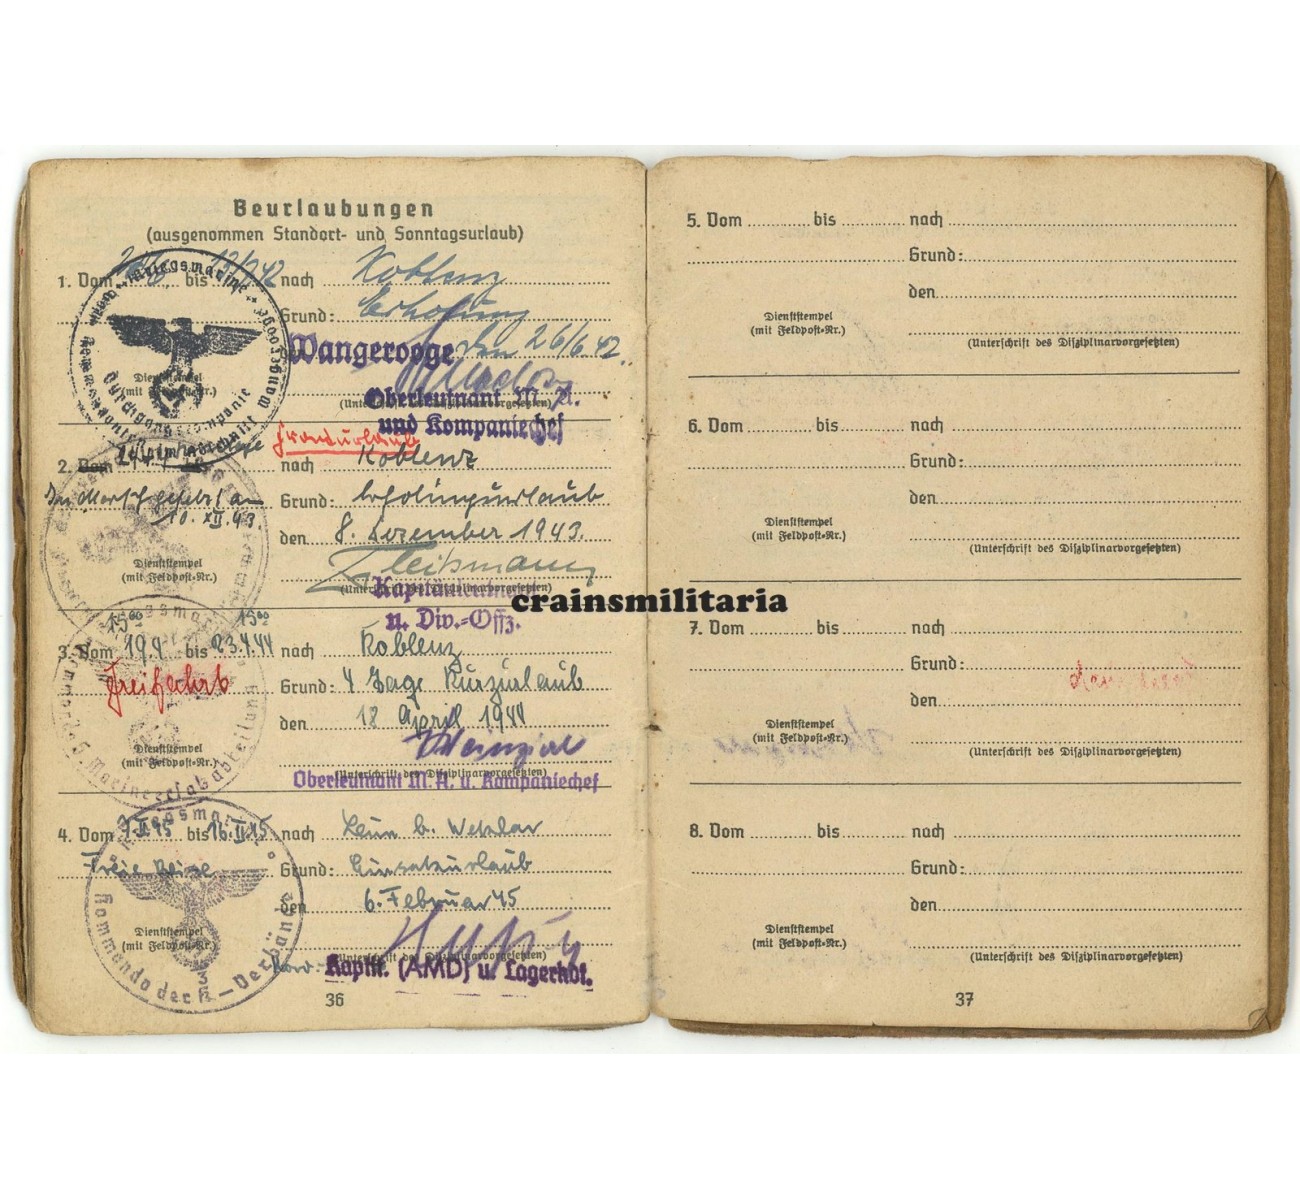 Beurlaubungen
(ausgenommen Standort- und Sonntagsurlaub)
1. Vom bis 12/7 42 nach Koblenz
Grund: Erholung
Wangerooge den 26/6 42.
Dienststempel
(mit Feldpost-Nr.)
(Unterschrift des Disziplinarvorgesetzten)
Oberleutnant M.A.
und Kompaniechef
Kriegsmarine
Durchgangskompanie
Wangerooge
2. Vom nach Koblenz
In Marsch gesetzt am
10. XII. 43.
Grund: Erholungsurlaub
den 8. Dezember 1943.
Dienststempel
(mit Feldpost-Nr.)
Fleißmann
(Unterschrift des Disziplinarvorgesetzten)
Kapitänleutnant
u. Div.-Offz.
15⁰⁰ 15⁰⁰
3. Vom 19.4. bis 23.4.44 nach Koblenz
Freifahrt
Grund: 4 Tage Kurzurlaub
den 18 April 1944
Dienststempel
(mit Feldpost-Nr.)
(Unterschrift des Disziplinarvorgesetzten)
Oberleutnant M.A. u. Kompaniechef
Kriegsmarine
5. Marineersatzabteilung
4. Vom 7.II.45 bis 16.II.45 nach Leun b. Wetzlar
Freie Reise Grund: Einsatzurlaub
den 6. Februar 45
Dienststempel
(mit Feldpost-Nr.)
(Unterschrift des Disziplinarvorgesetzten)
Kaptlt. (AMD) u. Lagerkdt.
Kriegsmarine
Kommando der K-Verbände
3
36
5. Vom bis nach
Grund:
den
Dienststempel
(mit Feldpost-Nr.)
(Unterschrift des Disziplinarvorgesetzten)
6. Vom bis nach
Grund:
den
Dienststempel
(mit Feldpost-Nr.)
(Unterschrift des Disziplinarvorgesetzten)
7. Vom bis nach
Grund:
den
Dienststempel
(mit Feldpost-Nr.)
(Unterschrift des Disziplinarvorgesetzten)
8. Vom bis nach
Grund:
den
Dienststempel
(mit Feldpost-Nr.)
(Unterschrift des Disziplinarvorgesetzten)
37
crainsmilitaria